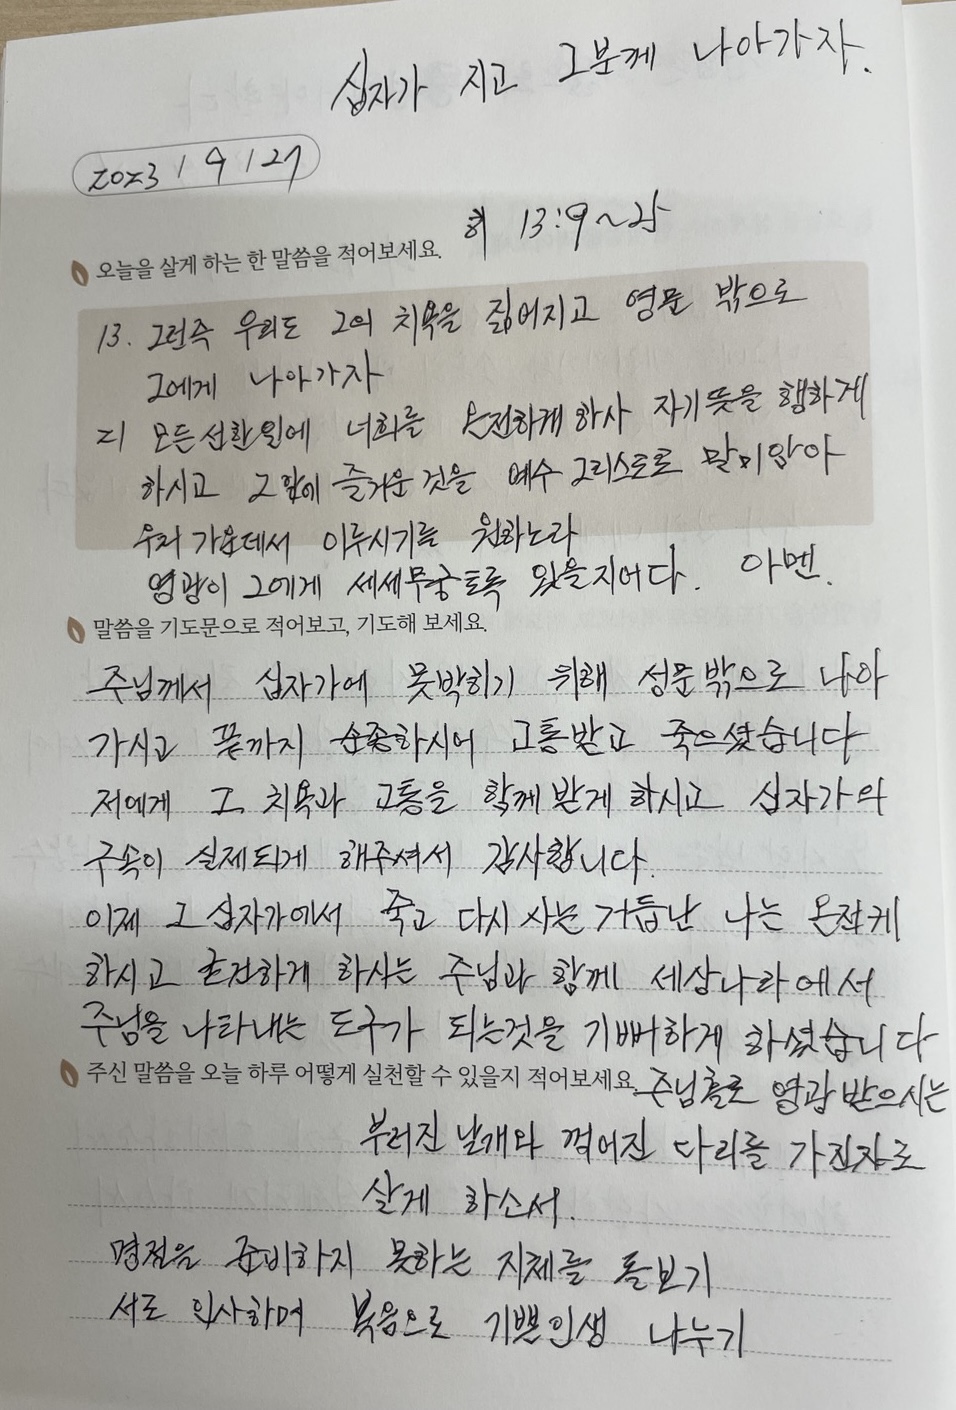 십자가 지고 그분께 나아가자.
2023 / 9 / 27
히 13:9~25
오늘을 살게 하는 한 말씀을 적어보세요.
13. 그런즉 우리도 그의 치욕을 짊어지고 영문 밖으로
그에게 나아가자
21 모든 선한 일에 너희를 온전하게 하사 자기 뜻을 행하게
하시고 그 앞에 즐거운 것을 예수 그리스도로 말미암아
우리 가운데서 이루시기를 원하노라
영광이 그에게 세세무궁토록 있을지어다. 아멘.
말씀을 기도문으로 적어보고, 기도해 보세요.
주님께서 십자가에 못박히기 위해 성문밖으로 나아
가시고 끝까지 순종하시어 고통받고 죽으셨습니다
저에게 그 치욕과 고통을 함께 받게 하시고 십자가의
구속이 실제되게 해주셔서 감사합니다.
이제 그 십자가에서 죽고 다시 사는 거듭난 나는
하시고 온전하게 하시는 주님과 함께 세상나라에서
주님을 나타내는 도구가 되는것을 기뻐하게 하셨습니다
주신 말씀을 오늘 하루 어떻게 실천할 수 있을지 적어보세요.
주님홀로 영광 받으시는
부러진 날개와 꺾어진 다리를 가진자로
살게 하소서.
명절을 준비하지 못하는 지체를 돌보기
서로 인사하며 복음으로 기쁜인생 나누기